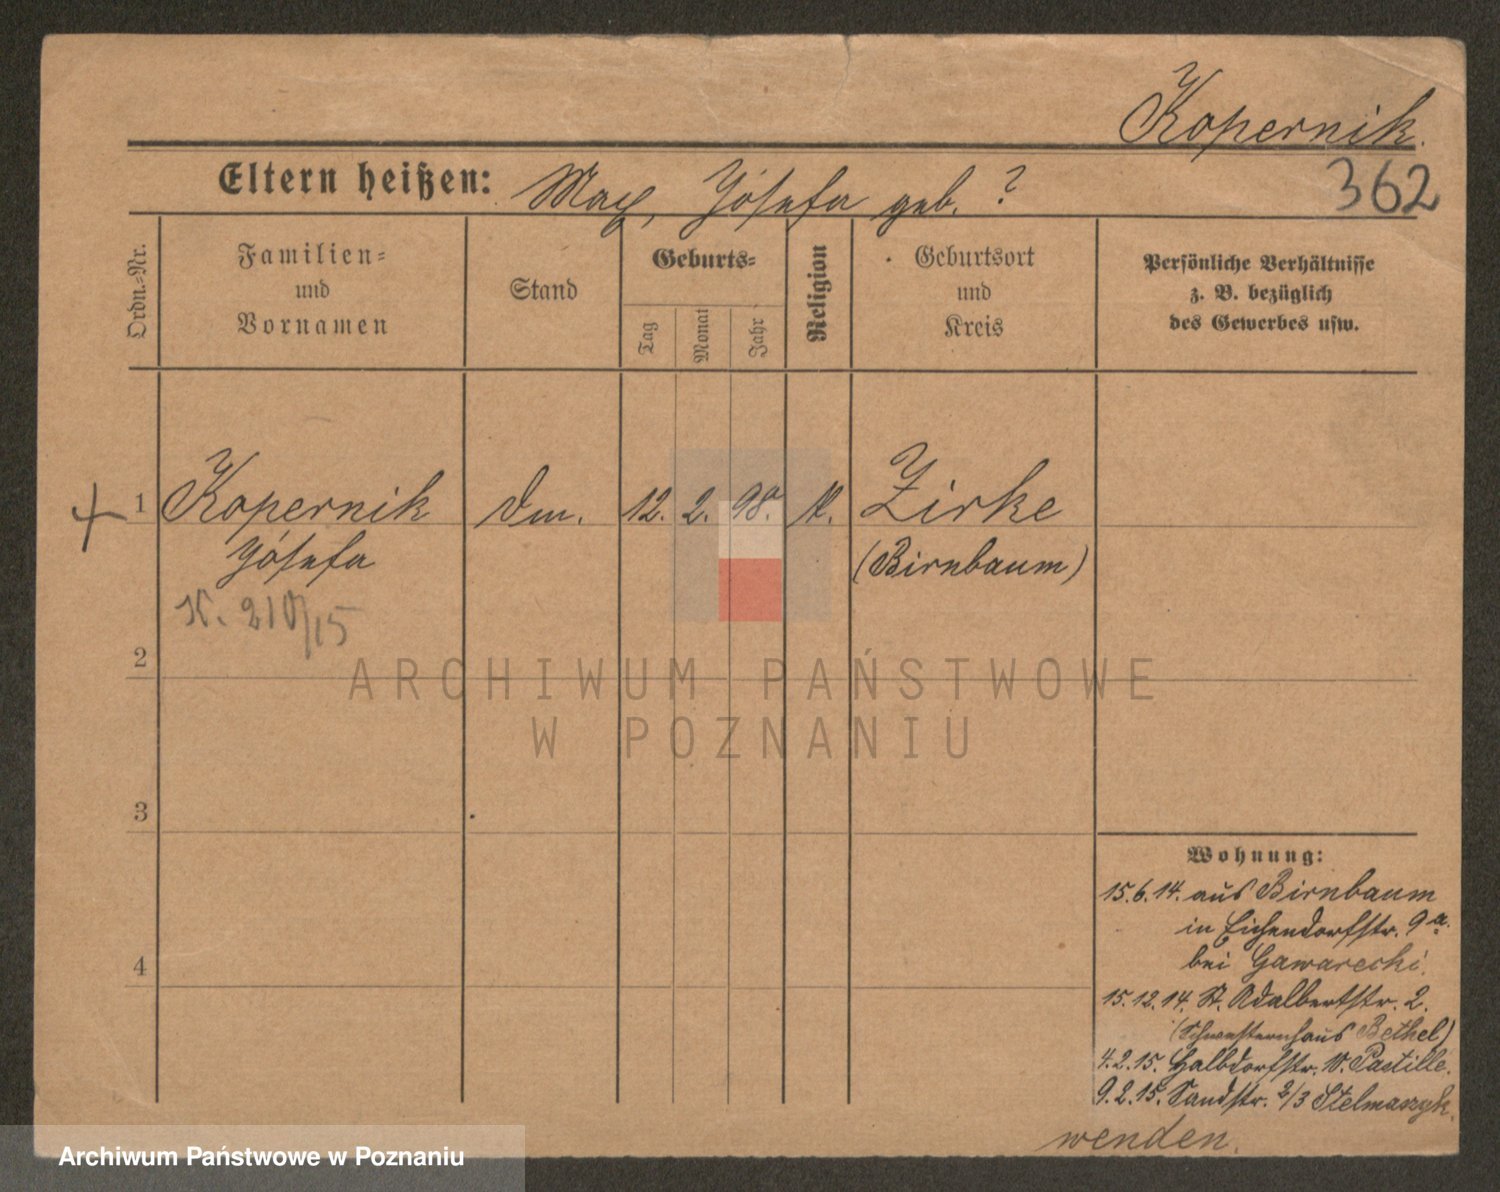 Kopernik.
362
Eltern heißen: Max, Jósefa geb. ?
Ordn.-Nr.
Familien-
und
Vornamen
Stand
Geburts-
Tag
Monat
Jahr
Religion
Geburtsort
und
Kreis
Persönliche Verhältnisse
z. B. bezüglich
des Gewerbes usw.
+ 1 Kopernik dm. 12. 2. 98. k. Zirke
Jósefa (Birnbaum)
K. 210/15
2
3
4
Wohnung:
15.6.14. aus Birnbaum
in Eichendorfstr. 9a.
bei Gawarecki.
15.12.14. St. Adalbertstr. 2.
(Schwesternhaus Bethel)
4.2.15. Halbdorfstr. 10. Pastille.
9.2.15. Sandstr. 2/3 Stelmaszyk.
wenden.
ARCHIWUM PAŃSTWOWE
W POZNANIU
Archiwum Państwowe w Poznaniu